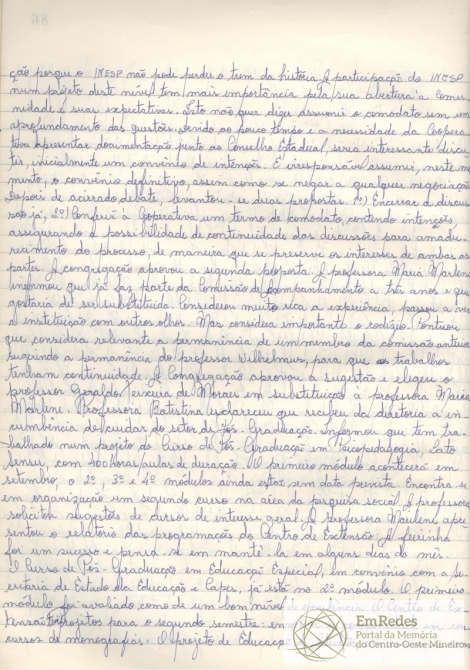 ção porque o INESP não pode perder o trem da história. A participação do INESP
num projeto deste nível tem mais importância pela sua abertura à comu
nidade e suas expectativas. Isto não quer dizer assumir o comodato sem um
aprofundamento das questões, devido ao pouco tempo e a necessidade da Coopera
tiva apresentar documentação junto ao Conselho Estadual, seria interessante discu
tir, inicialmente um convênio de intenções. É irresponsável assumir, neste mo
mento, o convênio definitivo, assim como se negar a qualquer negociação.
Depois de acirrado debate, levantou-se duas propostas. 1º) Encerrar a discus
são já, 2º) Conferir à Cooperativa um termo de comodato, contendo intenções,
assegurando a possibilidade de continuidade das discussões para amadu
recimento do processo, de maneira que se preserve os interesses de ambas as
partes. A congregação aprovou a segunda proposta. A professora Maria Marlene
informou que já faz parte da Comissão de Acompanhamento a três anos e que
gostaria de ser substituída. Considerou muito rica a experiência, passou a ver
a instituição com outros olhos. Mas considera importante o rodízio. Pontuou
que considera relevante a permanência de um membro da comissão anterior
sugerindo a permanência do professor Wilhelmus, para que os trabalhos
tenham continuidade. A Congregação aprovou a sugestão e elegeu o
professor Geraldo Teixeira de Moraes em substituição à professora Maria
Marlene. Professora Batistina esclareceu que recebeu da diretoria a in
cumbência de cuidar do setor de Pós-Graduação. Informou que tem tra
balhado num projeto do Curso de Pós-Graduação em Psicopedagogia, Lato
Sensu, com 400 horas/aulas de duração. O primeiro módulo acontecerá em
setembro, o 2º, 3º e 4º módulos ainda estão sem data prevista. Encontra-se
em organização um segundo curso na área da pesquisa social. A professora
solicitou sugestões de cursos de interesse geral. A Professora Maulene apre
sentou o relatório das programações do Centro de Extensão. A feirinha
foi um sucesso e pensa-se em mantê-la em alguns dias do mês.
O Curso de Pós-Graduação em Educação Especial, em convênio com a Se
cretaria de Estado da Educação e Capes, já está no 2º módulo. O primeiro
módulo foi avaliado como de um bom nível O Centro de Ex
tensão projetos para o segundo semestre:
cursos de monografias. O projeto de Educaç
EmRedes
Portal da Memória
do Centro-Oeste Mineiro